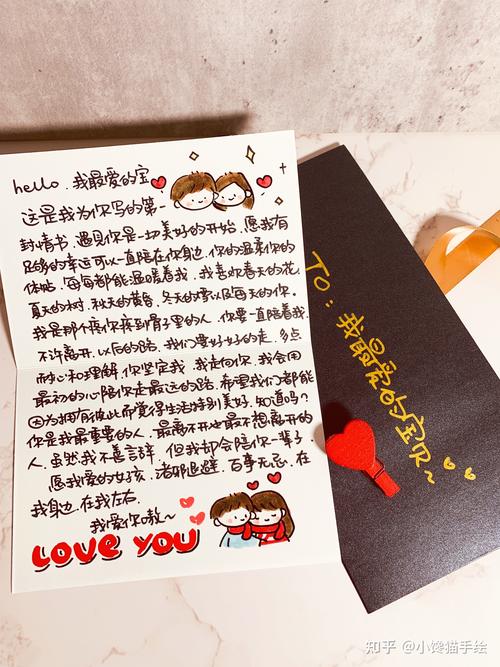 hello，我最爱的宝
这是我为你写的第一
封情书，遇见你是一切美好的开始，愿我有
足够的幸运可以一直陪在你身边，你的温柔你的
体贴，每每都能温暖着我，我喜欢春天的花，
夏天的树，秋天的黄昏，冬天的雪以及每天的你。
我是那个疼你疼到骨子里的人，你要一直陪着我，
不许离开，以后的路，我们要好好的走，多点
耐心和理解，你坚定我，我走向你，我会用
最初的心陪你走最远的路，希望我们都能
因为拥有彼此而觉得生活特别美好，知道吗？
你是我最重要的人，最离不开也最不想离开的
人，虽然我不善言辞，但我却会陪你一辈子
愿我爱的女孩，诸邪退避，百事无忌，在
我身边，在我左右。
我爱你嗷~
LOVE YOU
TO：我最爱的宝贝~
知乎 @小馋猫手绘